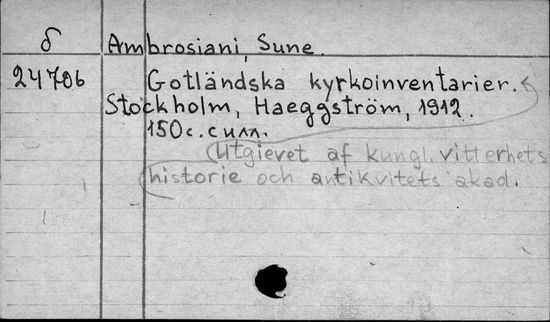 δ Ambrosiani, Sune.
24706 Gotländska kyrkoinventarier.
Stockholm, Haeggström, 1912.
150 с. с илл.
Utgievet af kungl. vitterhets
historie och antikvitets akad.